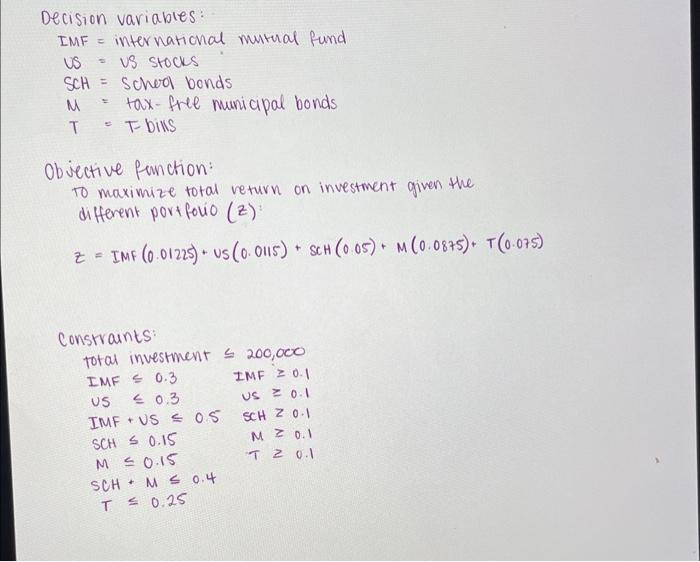 Decision variables:
IMF = international mutual fund
US = US stocks
SCH = School bonds
M = tax-free municipal bonds
T = T-bills
Objective function:
To maximize total return on investment given the
different portfolio (Z):
Z = IMF (0.01225) + US (0.0115) + SCH (0.05) + M (0.0875) + T (0.075)
Constraints:
total investment ≤ 200,000
IMF ≤ 0.3 IMF ≥ 0.1
US ≤ 0.3 US ≥ 0.1
IMF + US ≤ 0.5 SCH ≥ 0.1
SCH ≤ 0.15 M ≥ 0.1
M ≤ 0.15 T ≥ 0.1
SCH + M ≤ 0.4
T ≤ 0.25